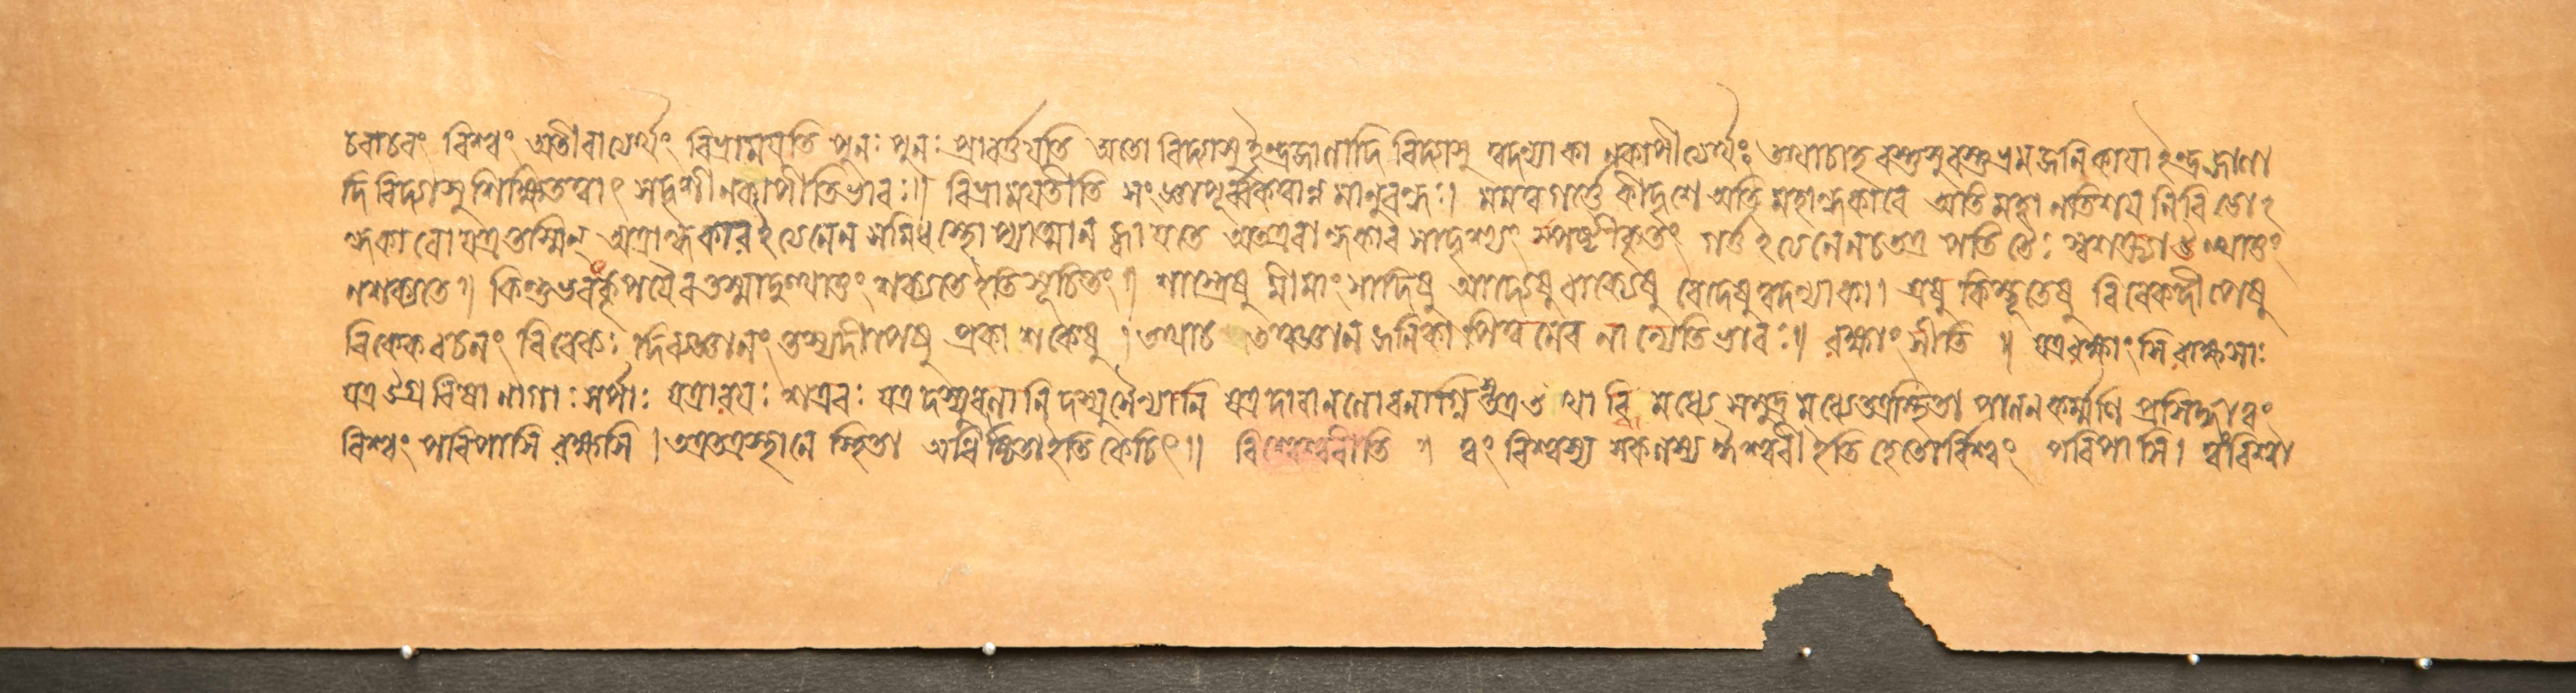 চরাচরং বিশ্বং অতীবাত্যর্থং বিভ্রাময়তি পুনঃ পুনঃ প্রাবর্ত্তয়তি অতো বিদ্যাসু ইন্দ্রজালাদি বিদ্যাসু ত্বদন্যা কা ন কাপীত্যর্থঃ তথাচাহ বস্তুসু বস্তুভ্রম জনিকায়া ইন্দ্রজালা
দি বিদ্যাসু শিক্ষিতত্বাৎ সদৃশী ন কাপীতিভাবঃ॥ বিভ্রাময়তীতি সংজ্ঞাপূর্ব্বকত্বান্ন মানুবন্ধঃ। মমত্বগর্ত্তে কীদৃশে অতি মহান্ধকারে অতি মহা নতিশয় নিবিডোই
ন্ধকারো যত্র তস্মিন্ অত্রান্ধকারইত্যনেন সন্নিধস্থোপ্যাত্মা ন জ্ঞায়তে অতএবান্ধকার সাদৃশ্যং স্পষ্টীকৃতং গর্ত্তইত্যনেন চ তত্র পতিতৈঃ স্বশক্ত্যা উত্থাতুং
ন শক্যতে॥ কিন্তু ভবৎকৃপয়ৈব তস্মাদুত্থাতুং শক্যতে ইতি সূচিতং॥ শাস্ত্রেষু মীমাংসাদিষু আদ্যেষু বাক্যেষু বেদেষু ত্বদন্যা কা। এষু কিম্ভূতেষু বিবেকদীপেষু
বিবেকবচনং বিবেকঃ দিব্যজ্ঞানং তস্য দীপেষু প্রকাশকেষু। তথাচ তত্ত্বজ্ঞান জনিকাপি ত্বমেব নান্যেতিভাবঃ॥ রক্ষাংসীতি॥ যত্র রক্ষাংসি রাক্ষসাঃ
যত্র উগ্র বিষা নাগাঃ সর্পাঃ যত্রারয়ঃ শত্রবঃ যত্র দস্যুবলানি দস্যুসৈন্যানি যত্র দাবানলো বনাগ্নিঃ তত্র তথাব্ধি মধ্যে সমুদ্র মধ্যে তত্র স্থিতা পালনকর্ম্মণি প্রসিদ্ধা ত্বং
বিশ্বং পরিপাসি রক্ষসি। তত্র তত্রস্থানে স্থিতা অধিষ্ঠিতা ইতি কেচিৎ॥ বিশ্বেশ্বরীতি॥ ত্বং বিশ্বস্য সকলস্য ঈশ্বরী ইতি হেতোর্বিশ্বং পরিপাসি। ত্বং বিশ্বা